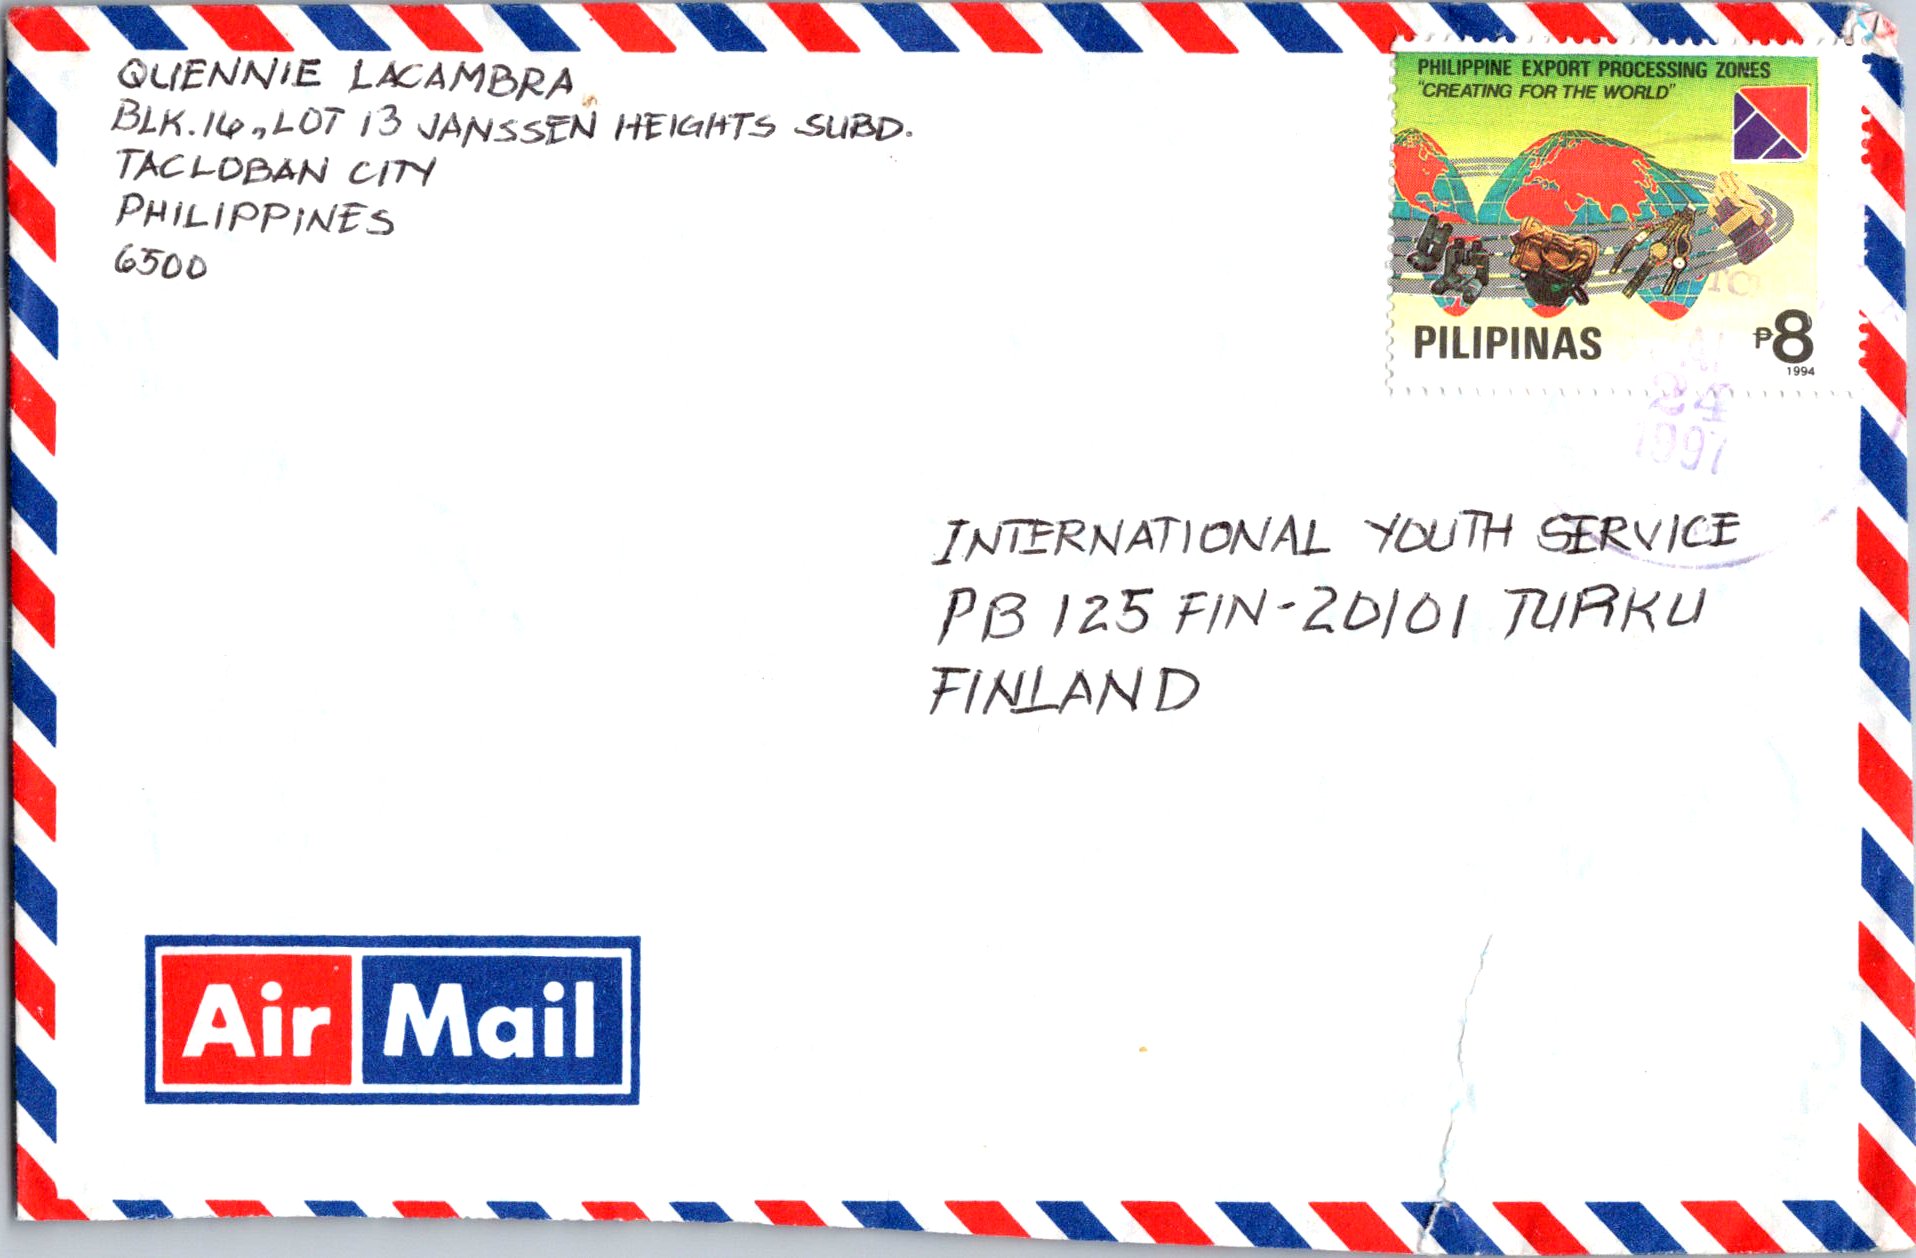 QUENNIE LACAMBRA
BLK. 16, LOT 13 JANSSEN HEIGHTS SUBD.
TACLOBAN CITY
PHILIPPINES
6500
PHILIPPINE EXPORT PROCESSING ZONES
"CREATING FOR THE WORLD"
PILIPINAS
₱8
1994
24
1997
INTERNATIONAL YOUTH SERVICE
PB 125 FIN-20101 TURKU
FINLAND
Air Mail